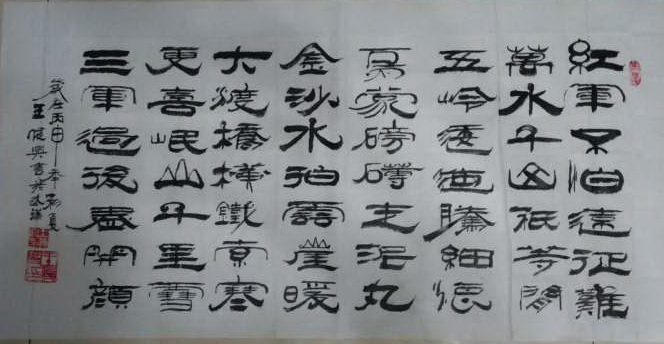 紅軍不怕遠征難
萬水千山祇等閒
五岭逶迤騰細浪
烏蒙磅礴走泥丸
金沙水拍雲崖暖
大渡橋橫鐵索寒
更喜岷山千里雪
三軍過後盡開顏
歲在丙申年初夏
王興書於